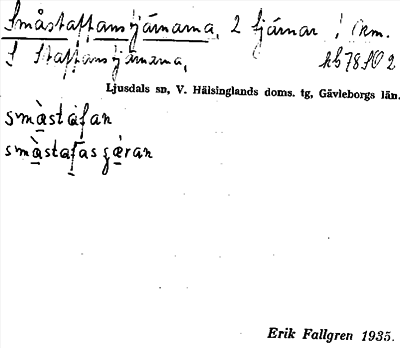 Småstaffanstjärnarna, 2 tjärnar i Rkm.
S Staffanstjärnarna, kb 78 SO 2
Ljusdals sn, V. Hälsinglands doms. tg, Gävleborgs län.
småstáfan
Erik Fallgren 1935.